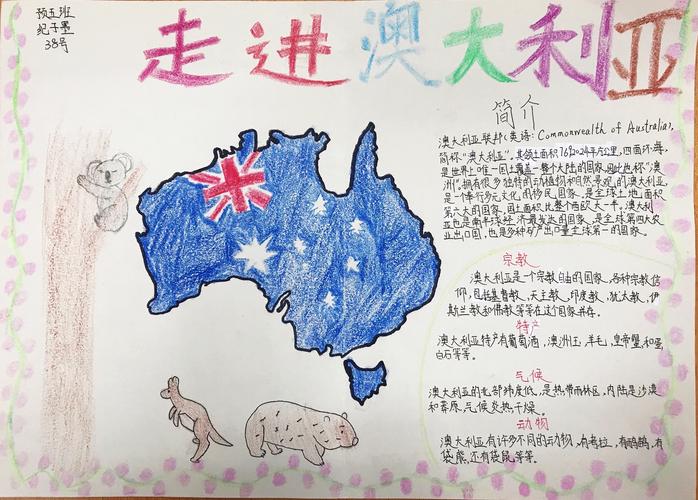 预五班
纪子墨
38号
走进澳大利亚
简介
澳大利亚联邦(英语: Commonwealth of Australia),
简称"澳大利亚"。其领土面积7692024平方公里,四面环海,
是世界上唯一国土覆盖一整个大陆的国家,因此也称"澳
洲",拥有很多独特的动植物和自然景观的澳大利亚,
是一个奉行多元文化的移民国家。是全球土地面积
第六大的国家,国土面积比整个西欧大一半。澳大利
亚也是南半球经济最发达的国家、是全球第四大农
业出口国,也是多种矿产出口量全球第一的国家。
宗教
澳大利亚是一个宗教自由的国家,各种宗教信
仰,包括基督教、天主教、印度教、犹太教、伊
斯兰教和佛教等等在这个国家并存。
特产
澳大利亚特产有葡萄酒,澳洲玉,羊毛,皇帝蟹,和蛋
白石等等。
气候
澳大利亚的北部纬度低,是热带雨林区,内陆是沙漠
和草原,气候炎热干燥。
动物
澳大利亚有许多不同的动物,有考拉,有鸸鹋,有
袋熊,还有袋鼠等等。